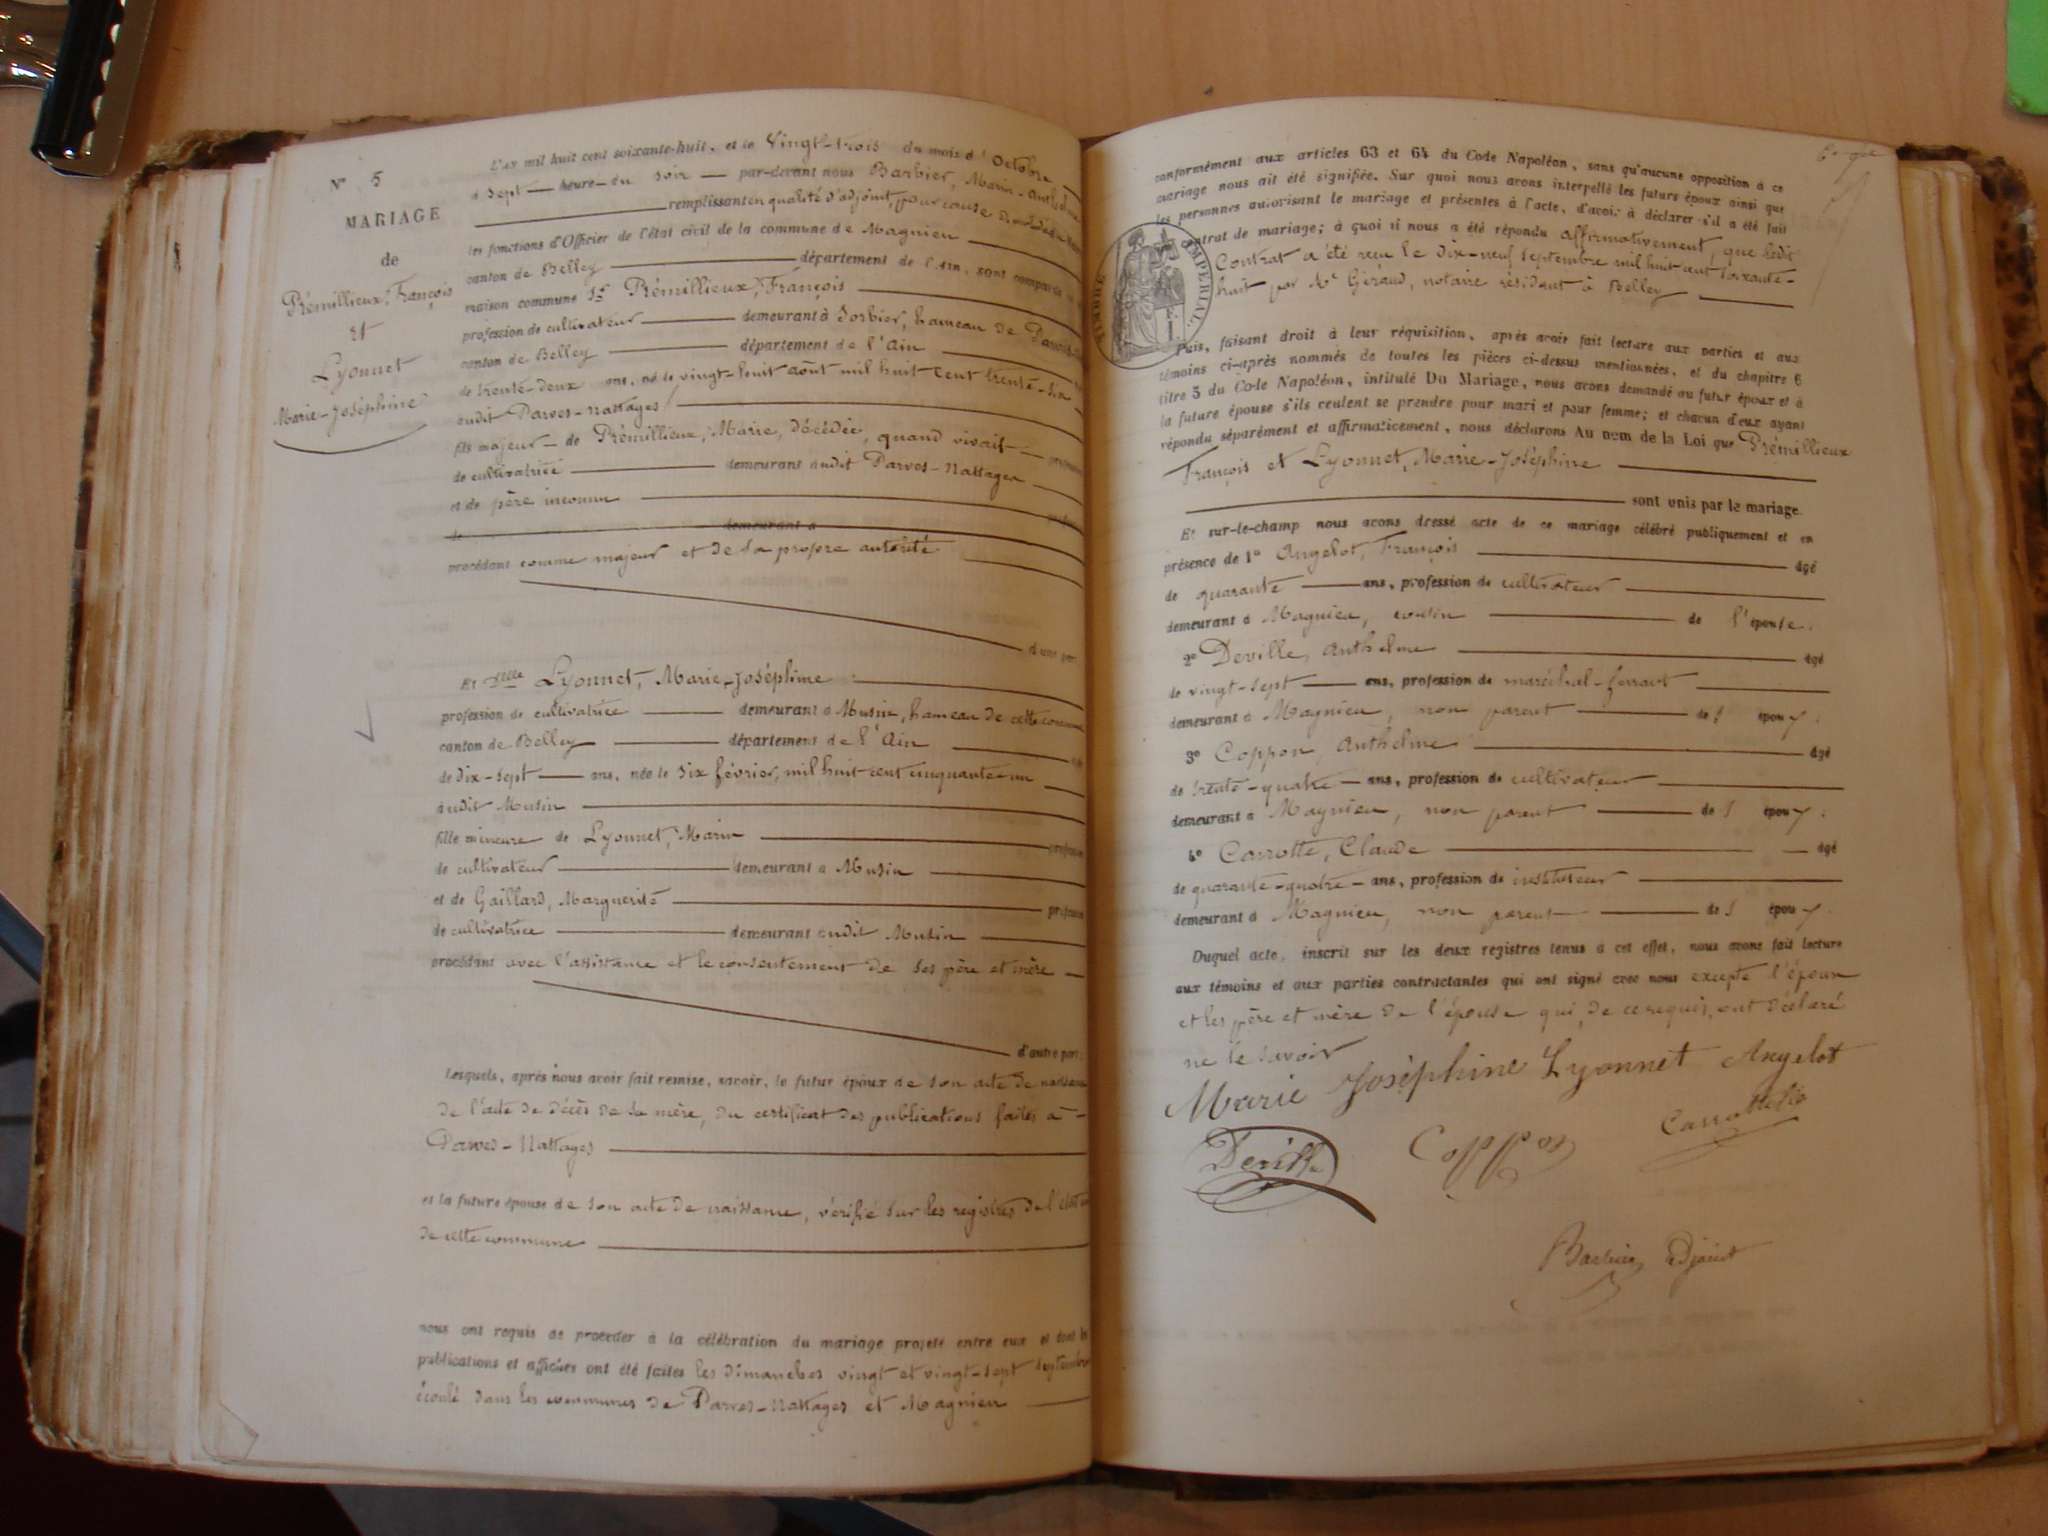 N° 5
MARIAGE
de
Prémillieux, François
et
Lyonnet
Marie-Joséphine
L'an mil huit cent soixante-huit, et le vingt-trois du mois d'Octobre
à sept heure du soir par-devant nous Barbier, Marin-Anthelme
remplissant en qualité d'adjoint, pour cause
les fonctions d'Officier de l'état civil de la commune de Magnieu
canton de Belley département de l'Ain, sont comparus
maison commune Sr Prémillieux, François
profession de cultivateur demeurant à Sorbier, hameau de
canton de Belley département de l'Ain
de trente-deux ans, né le vingt-huit août mil huit cent trente-six
audit Parves-Nattages
fils majeur de Prémillieux, Marie, décédée, quand vivait
de cultivatrice demeurant audit Parves-Nattages
et de père inconnu
de demeurant à
procédant comme majeur et de sa propre autorité
d'une part
Et Delle Lyonnet, Marie-Joséphine
profession de cultivatrice demeurant à Musin, hameau de cette commune
canton de Belley département de l'Ain
de dix-sept ans, née le six février, mil huit cent cinquante-un
audit Musin
fille mineure de Lyonnet, Marin
de cultivateur demeurant à Musin
et de Gaillard, Marguerite profession
de cultivatrice demeurant audit Musin
procédant avec l'assistance et le consentement de ses père et mère
d'autre part;
Lesquels, après nous avoir fait remise, savoir, le futur époux de son acte de naissance
de l'acte de décès de sa mère, du certificat des publications faites à
Parves-Nattages
et la future épouse de son acte de naissance, vérifié sur les registres de l'état
de cette commune
nous ont requis de procéder à la célébration du mariage projeté entre eux et dont les
publications et affiches ont été faites les dimanches vingt et vingt-sept septembre
écoulé dans les communes de Parves-Nattages et Magnieu
conformément aux articles 63 et 64 du Code Napoléon, sans qu'aucune opposition à ce
mariage nous ait été signifiée. Sur quoi nous avons interpellé les futurs époux ainsi que
les personnes autorisant le mariage et présentes à l'acte, d'avoir à déclarer s'il a été fait
contrat de mariage; à quoi il nous a été répondu affirmativement, que ledit
Contrat a été reçu le dix-neuf septembre mil huit cent soixante-
huit par Me Giraud, notaire résidant à Belley
TIMBRE IMPERIAL
Puis, faisant droit à leur réquisition, après avoir fait lecture aux parties et aux
témoins ci-après nommés de toutes les pièces ci-dessus mentionnées, et du chapitre 6
titre 5 du Code Napoléon, intitulé Du Mariage, nous avons demandé au futur époux et à
la future épouse s'ils veulent se prendre pour mari et pour femme; et chacun d'eux ayant
répondu séparément et affirmativement, nous déclarons Au nom de la Loi que Prémillieux
François et Lyonnet, Marie-Joséphine
sont unis par le mariage.
Et sur-le-champ nous avons dressé acte de ce mariage célébré publiquement et en
présence de 1° Angelot, François âgé
de quarante ans, profession de cultivateur
demeurant à Magnieu, cousin de l'épouse.
2° Deville, Anthelme âgé
de vingt-sept ans, profession de maréchal-ferrant
demeurant à Magnieu, non parent des époux.
3° Coppon, Anthelme âgé
de trente-quatre ans, profession de cultivateur
demeurant à Magnieu, non parent des époux.
4° Carrotte, Claude âgé
de quarante-quatre ans, profession de instituteur
demeurant à Magnieu, non parent des époux.
Duquel acte, inscrit sur les deux registres tenus à cet effet, nous avons fait lecture
aux témoins et aux parties contractantes qui ont signé avec nous excepté l'époux
et les père et mère de l'épouse qui, de ce requis, ont déclaré
ne le savoir
Marie Joséphine Lyonnet Angelot
Deville Coppon Carrotte
Barbier Adjoint